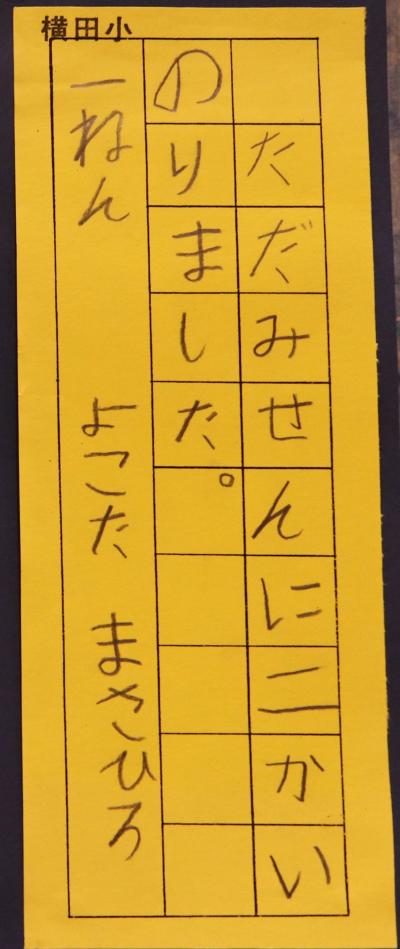 横田小
ただみせんに二かい
のりました。
一ねん よこた まさひろ